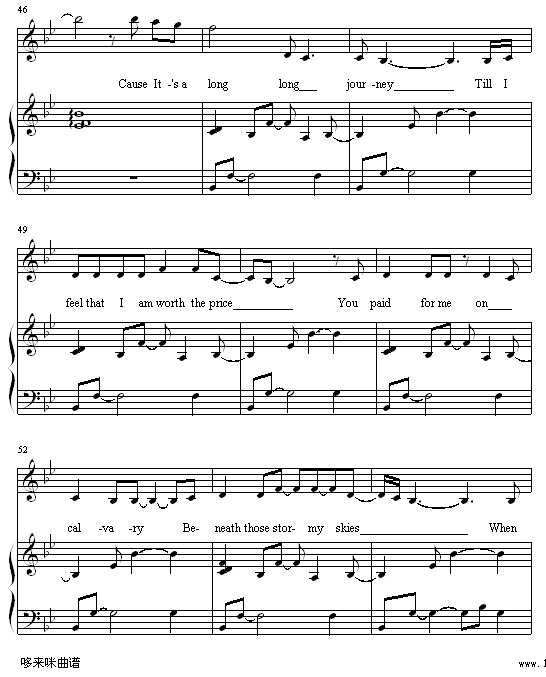 46
Cause It -'s a long long___ jour -ney_________ Till I
49
feel that I am worth the price_________ You paid for me on___
52
cal -va -ry Be- neath those stor- my skies________________ When
哆来咪曲谱 www. 1